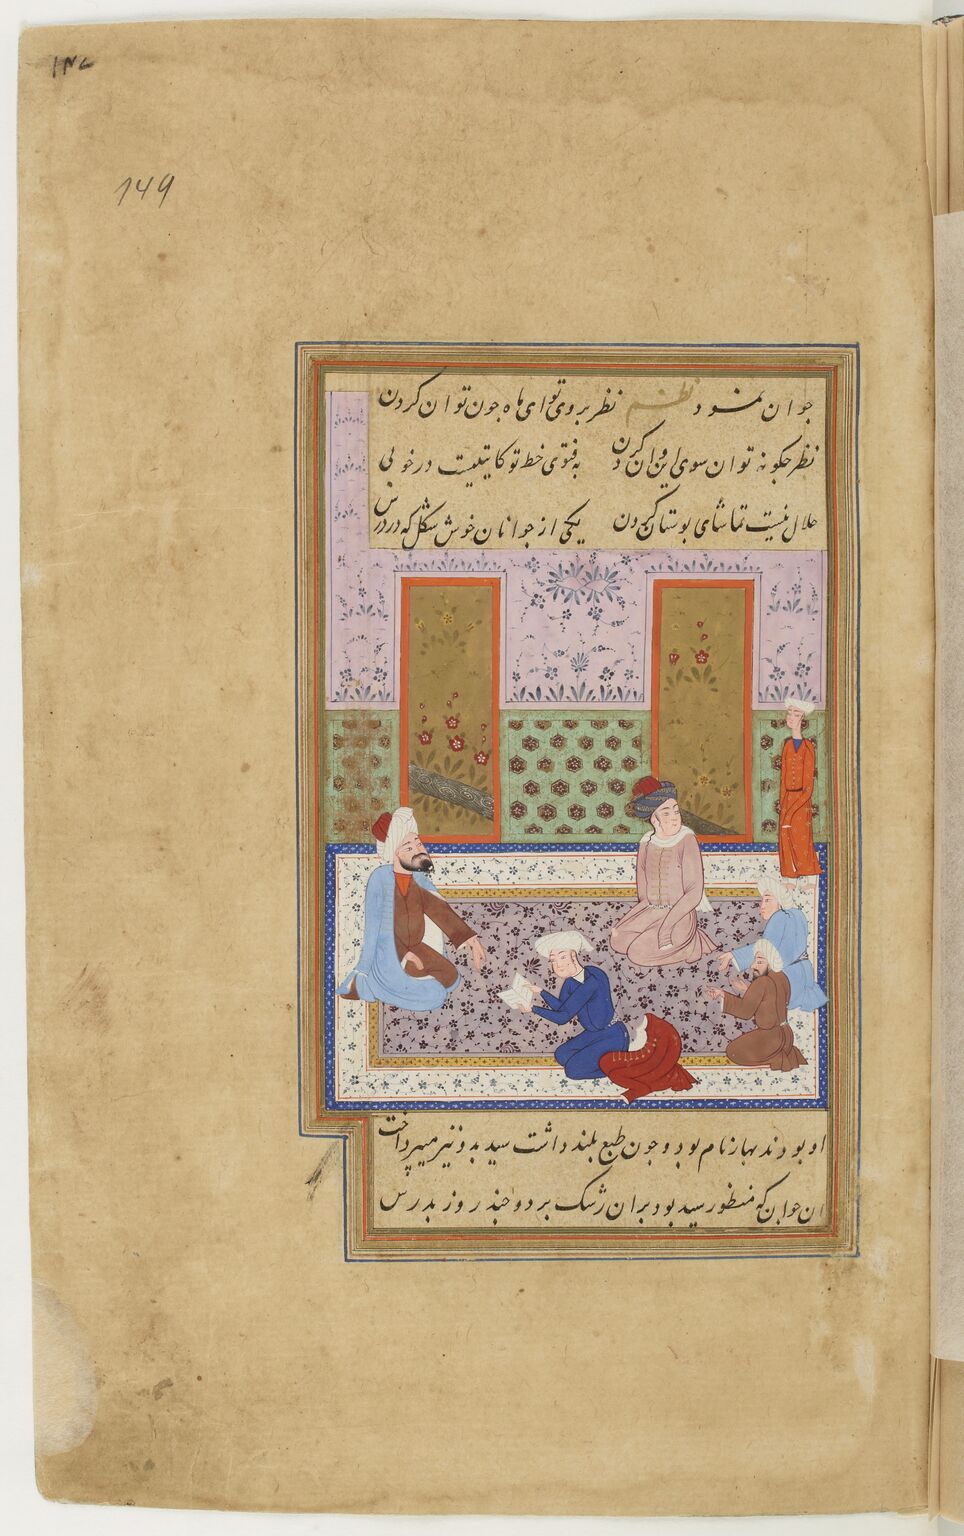 ۱۴۷
149
جوان نمود نظم نظر بروی تو ای ماه چون توان کردن
نظر چگونه توان سوی این و آن کردن به فتوی خط تو کاتیست در خوبی
حلال نیست تماشای بوستان کردن یکی از جوانان خوش شکل که در درس
او بودند بهار نام بود و چون طبع بلند داشت سید بدو نیز میپرداخت
آن جوان که منظور سید بود بر آن رشک برد و چند روز بدرس